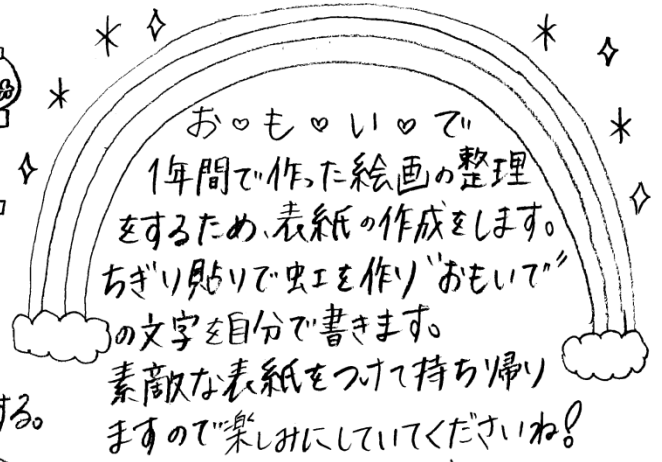 お♡も♡い♡で
1年間で作った絵画の整理
をするため、表紙の作成をします。
ちぎり貼りで虹を作り〝おもいで〟
の文字を自分で書きます。
素敵な表紙をつけて持ち帰り
する。
ますので楽しみにしていてくださいね!